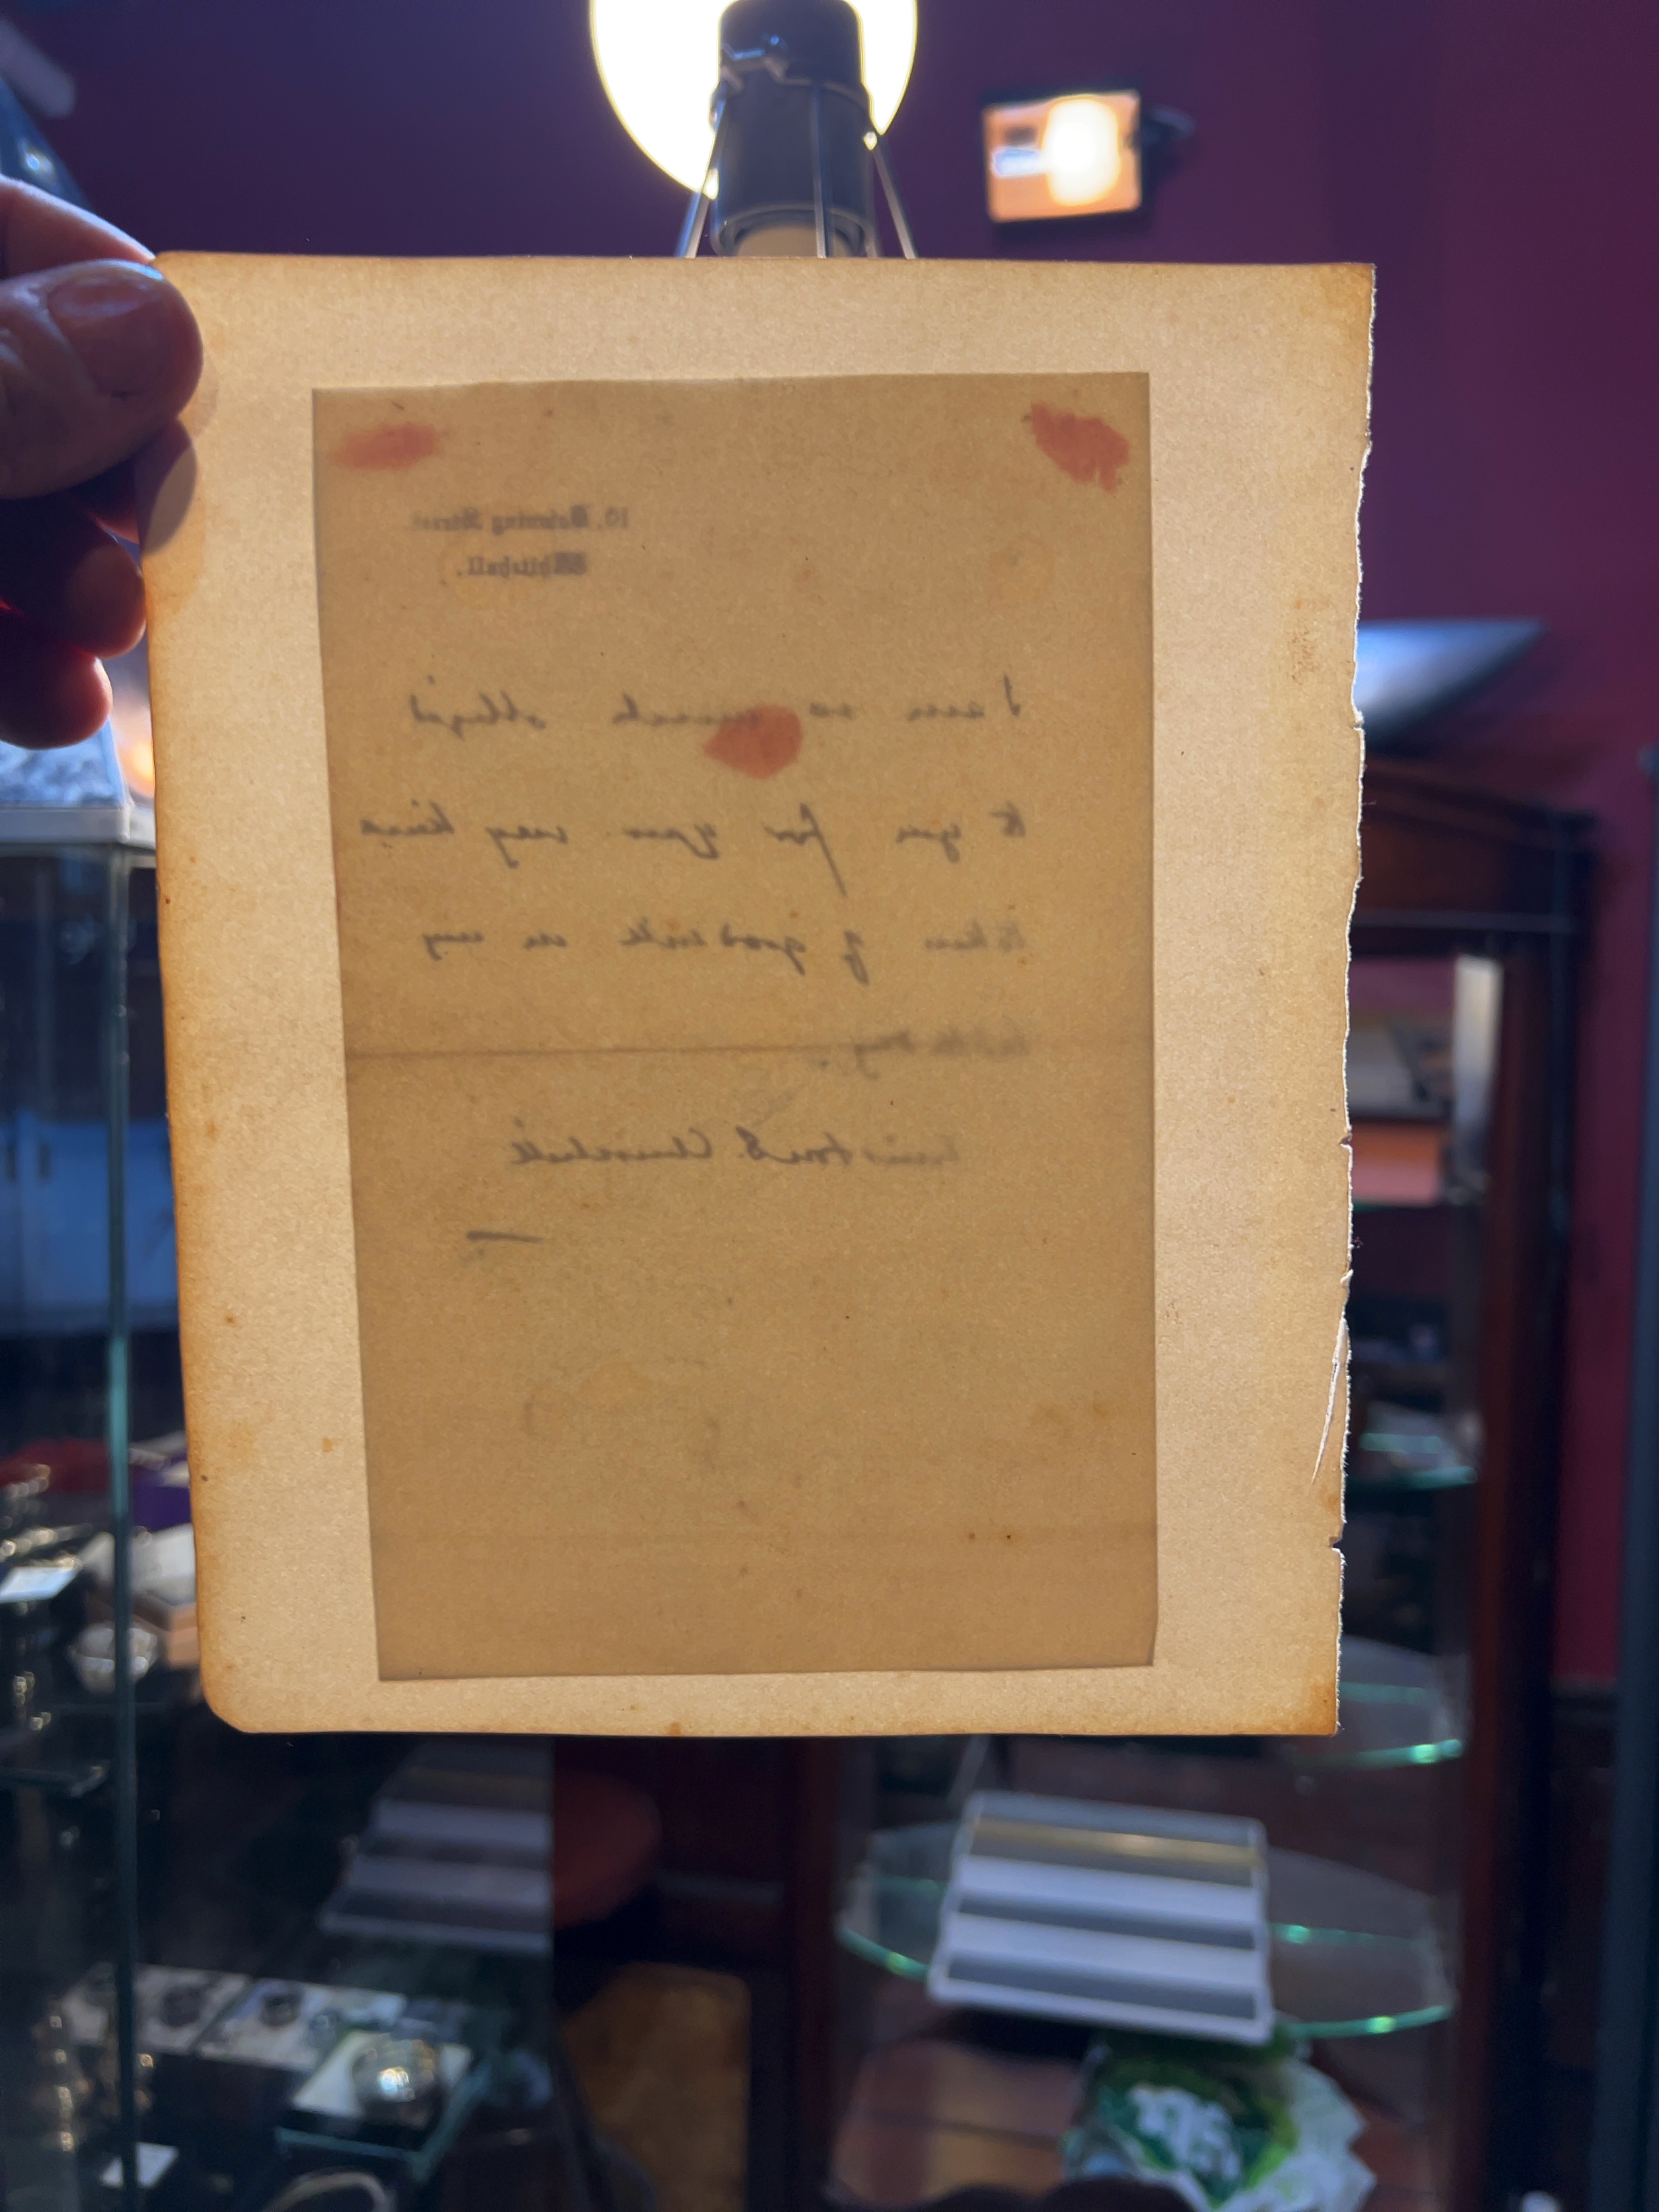 10, Downing Street,
Whitehall.
I am so much obliged
to you for your very kind
token of goodwill on my
birthday.
Winston S. Churchill